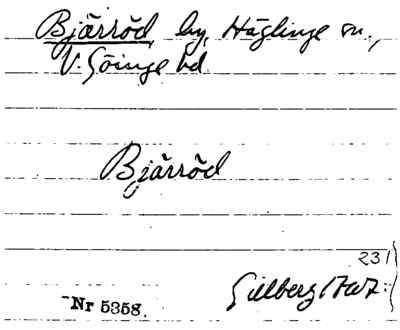 Bjärröd by, Häglinge sn.,
V. Göinge hd
Bjärröd
231
Gillberg
Nr 5358.